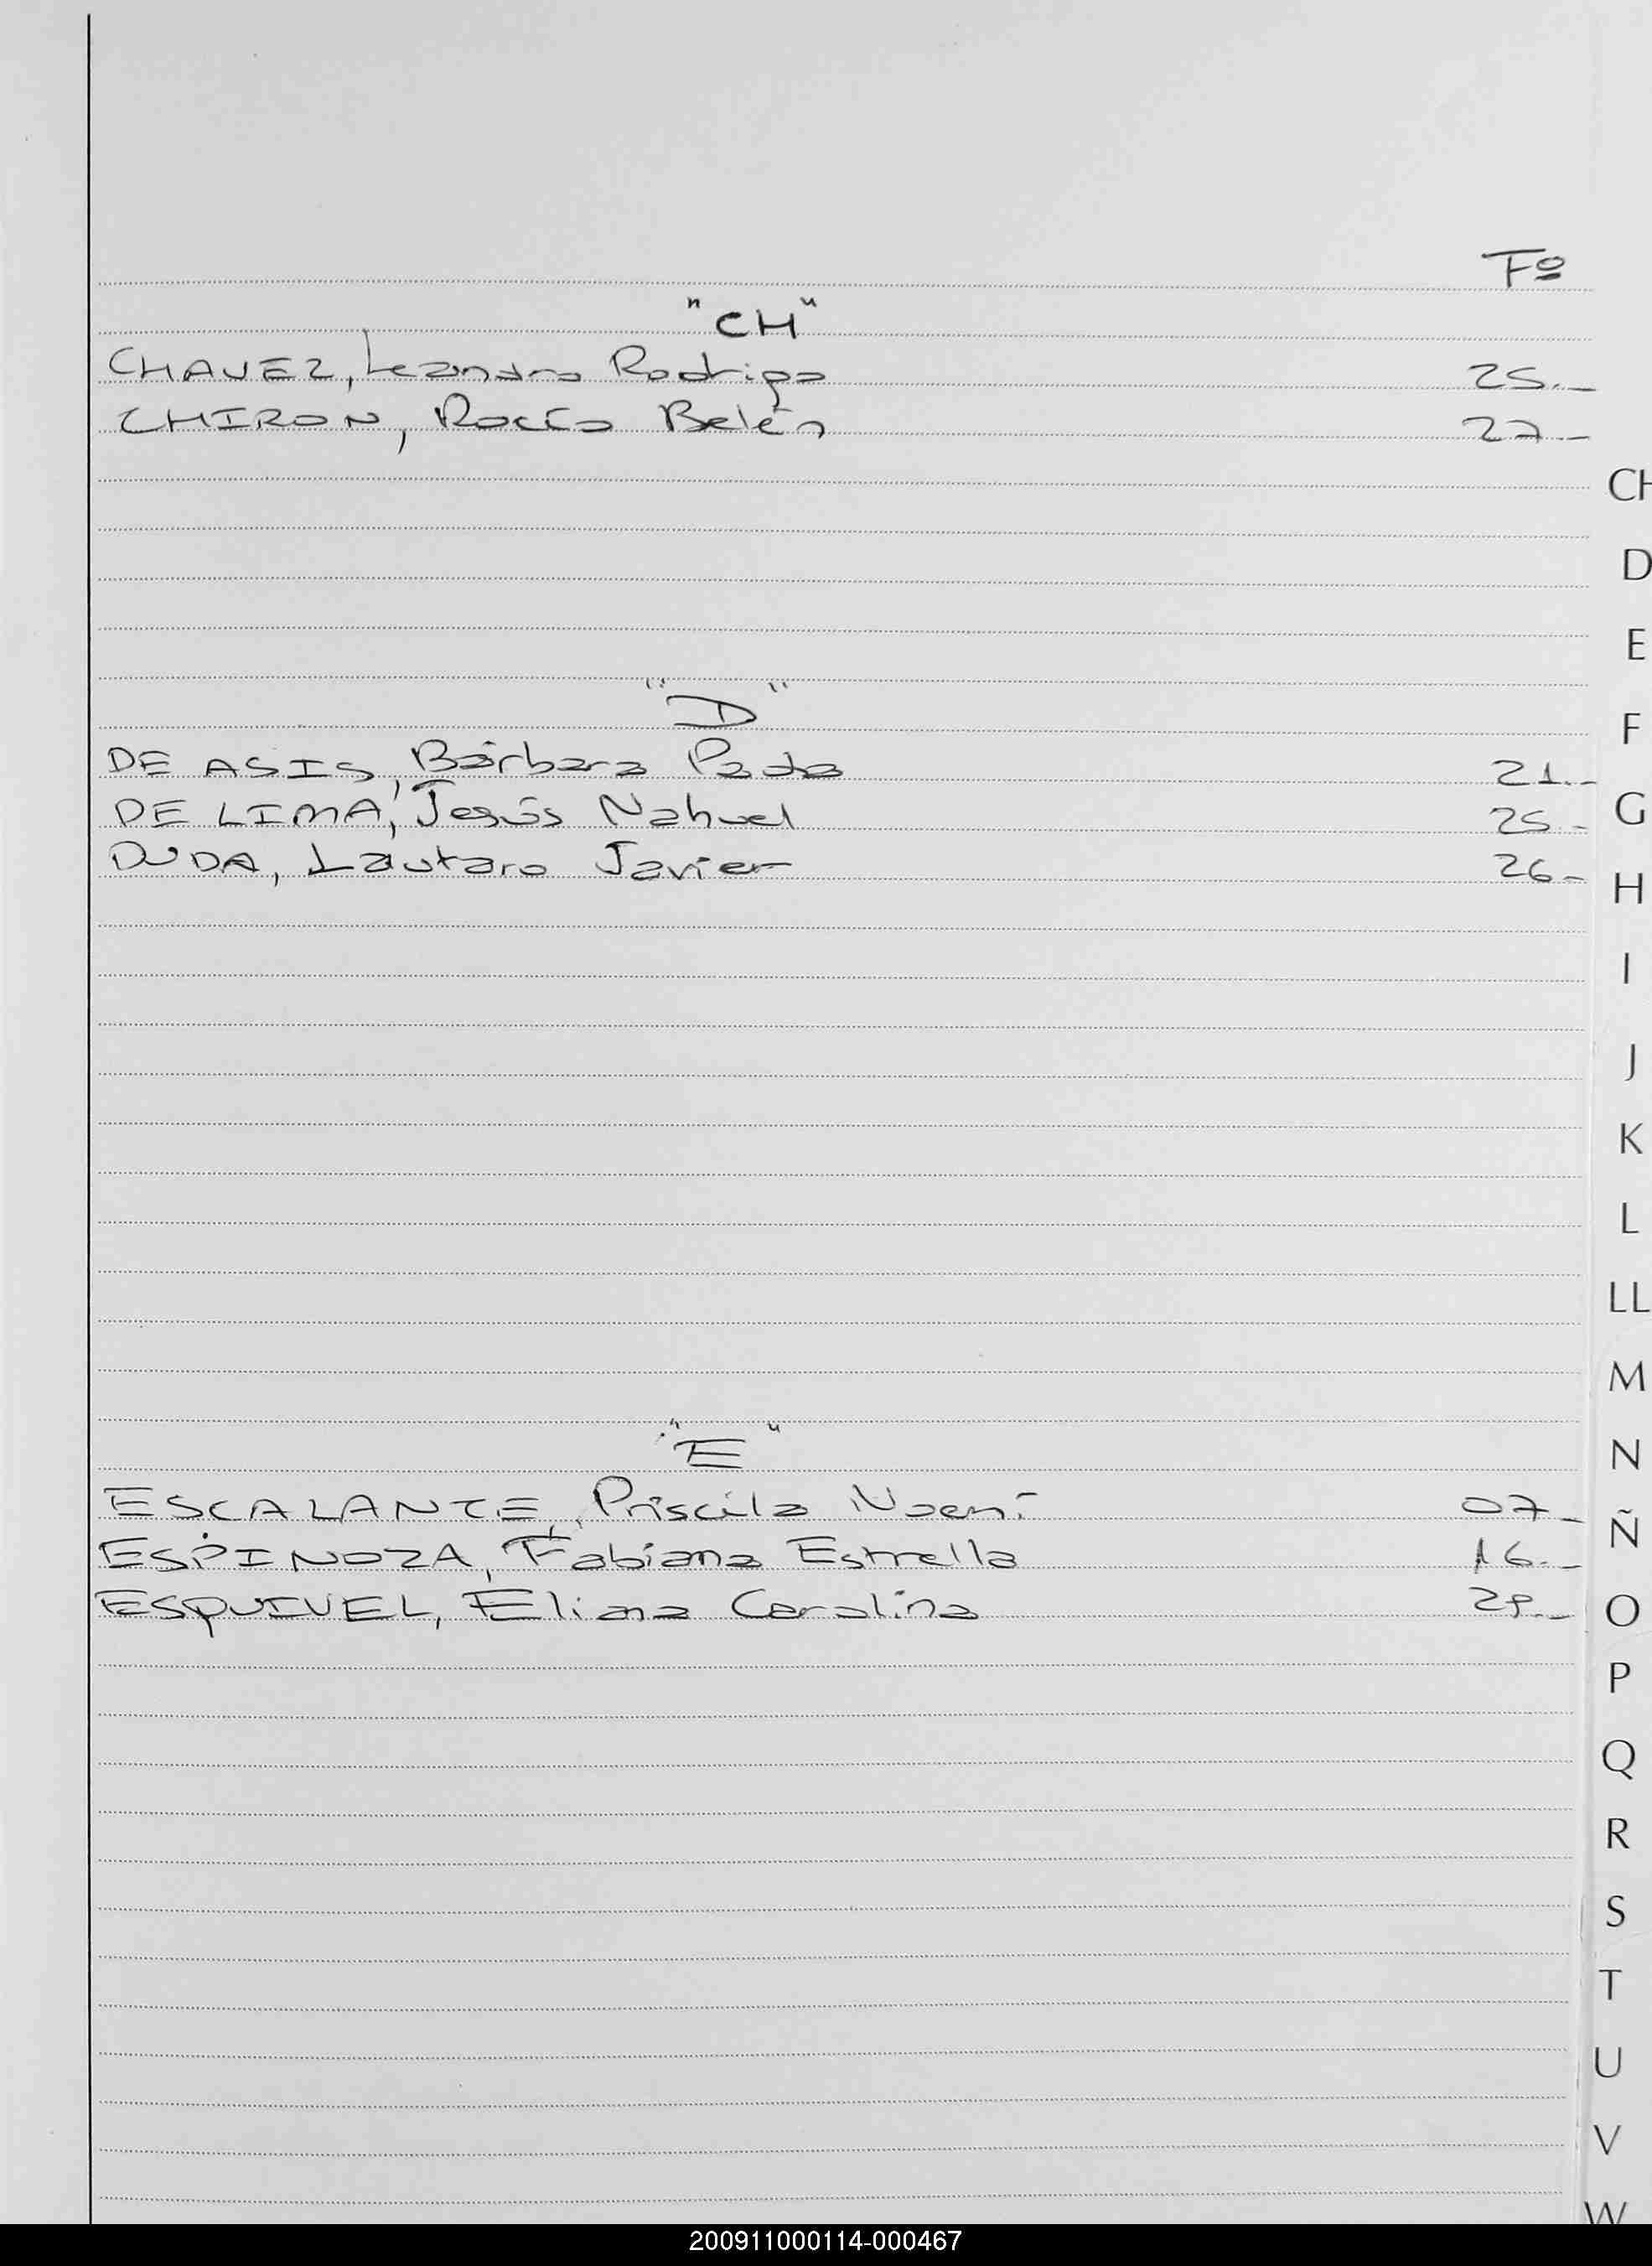 Fº
"CH"
CHAVEZ, Leandro Rodrigo 25.-
CHIRON, Rocío Belén 27.-
CH
D
E
"D"
F
DE ASIS, Bárbara 21.-
G
DE LIMA, Jesús Nahuel 25.-
DUDA, Lautaro Javier 26.-
H
I
J
K
L
LL
M
"E"
N
ESCALANTE, Priscila Noemí 07.-
Ñ
ESPINOZA, Fabiana Estrella 16.-
ESQUIVEL, Eliana Carolina
O
P
Q
R
S
T
U
V
W
200911000114-000467